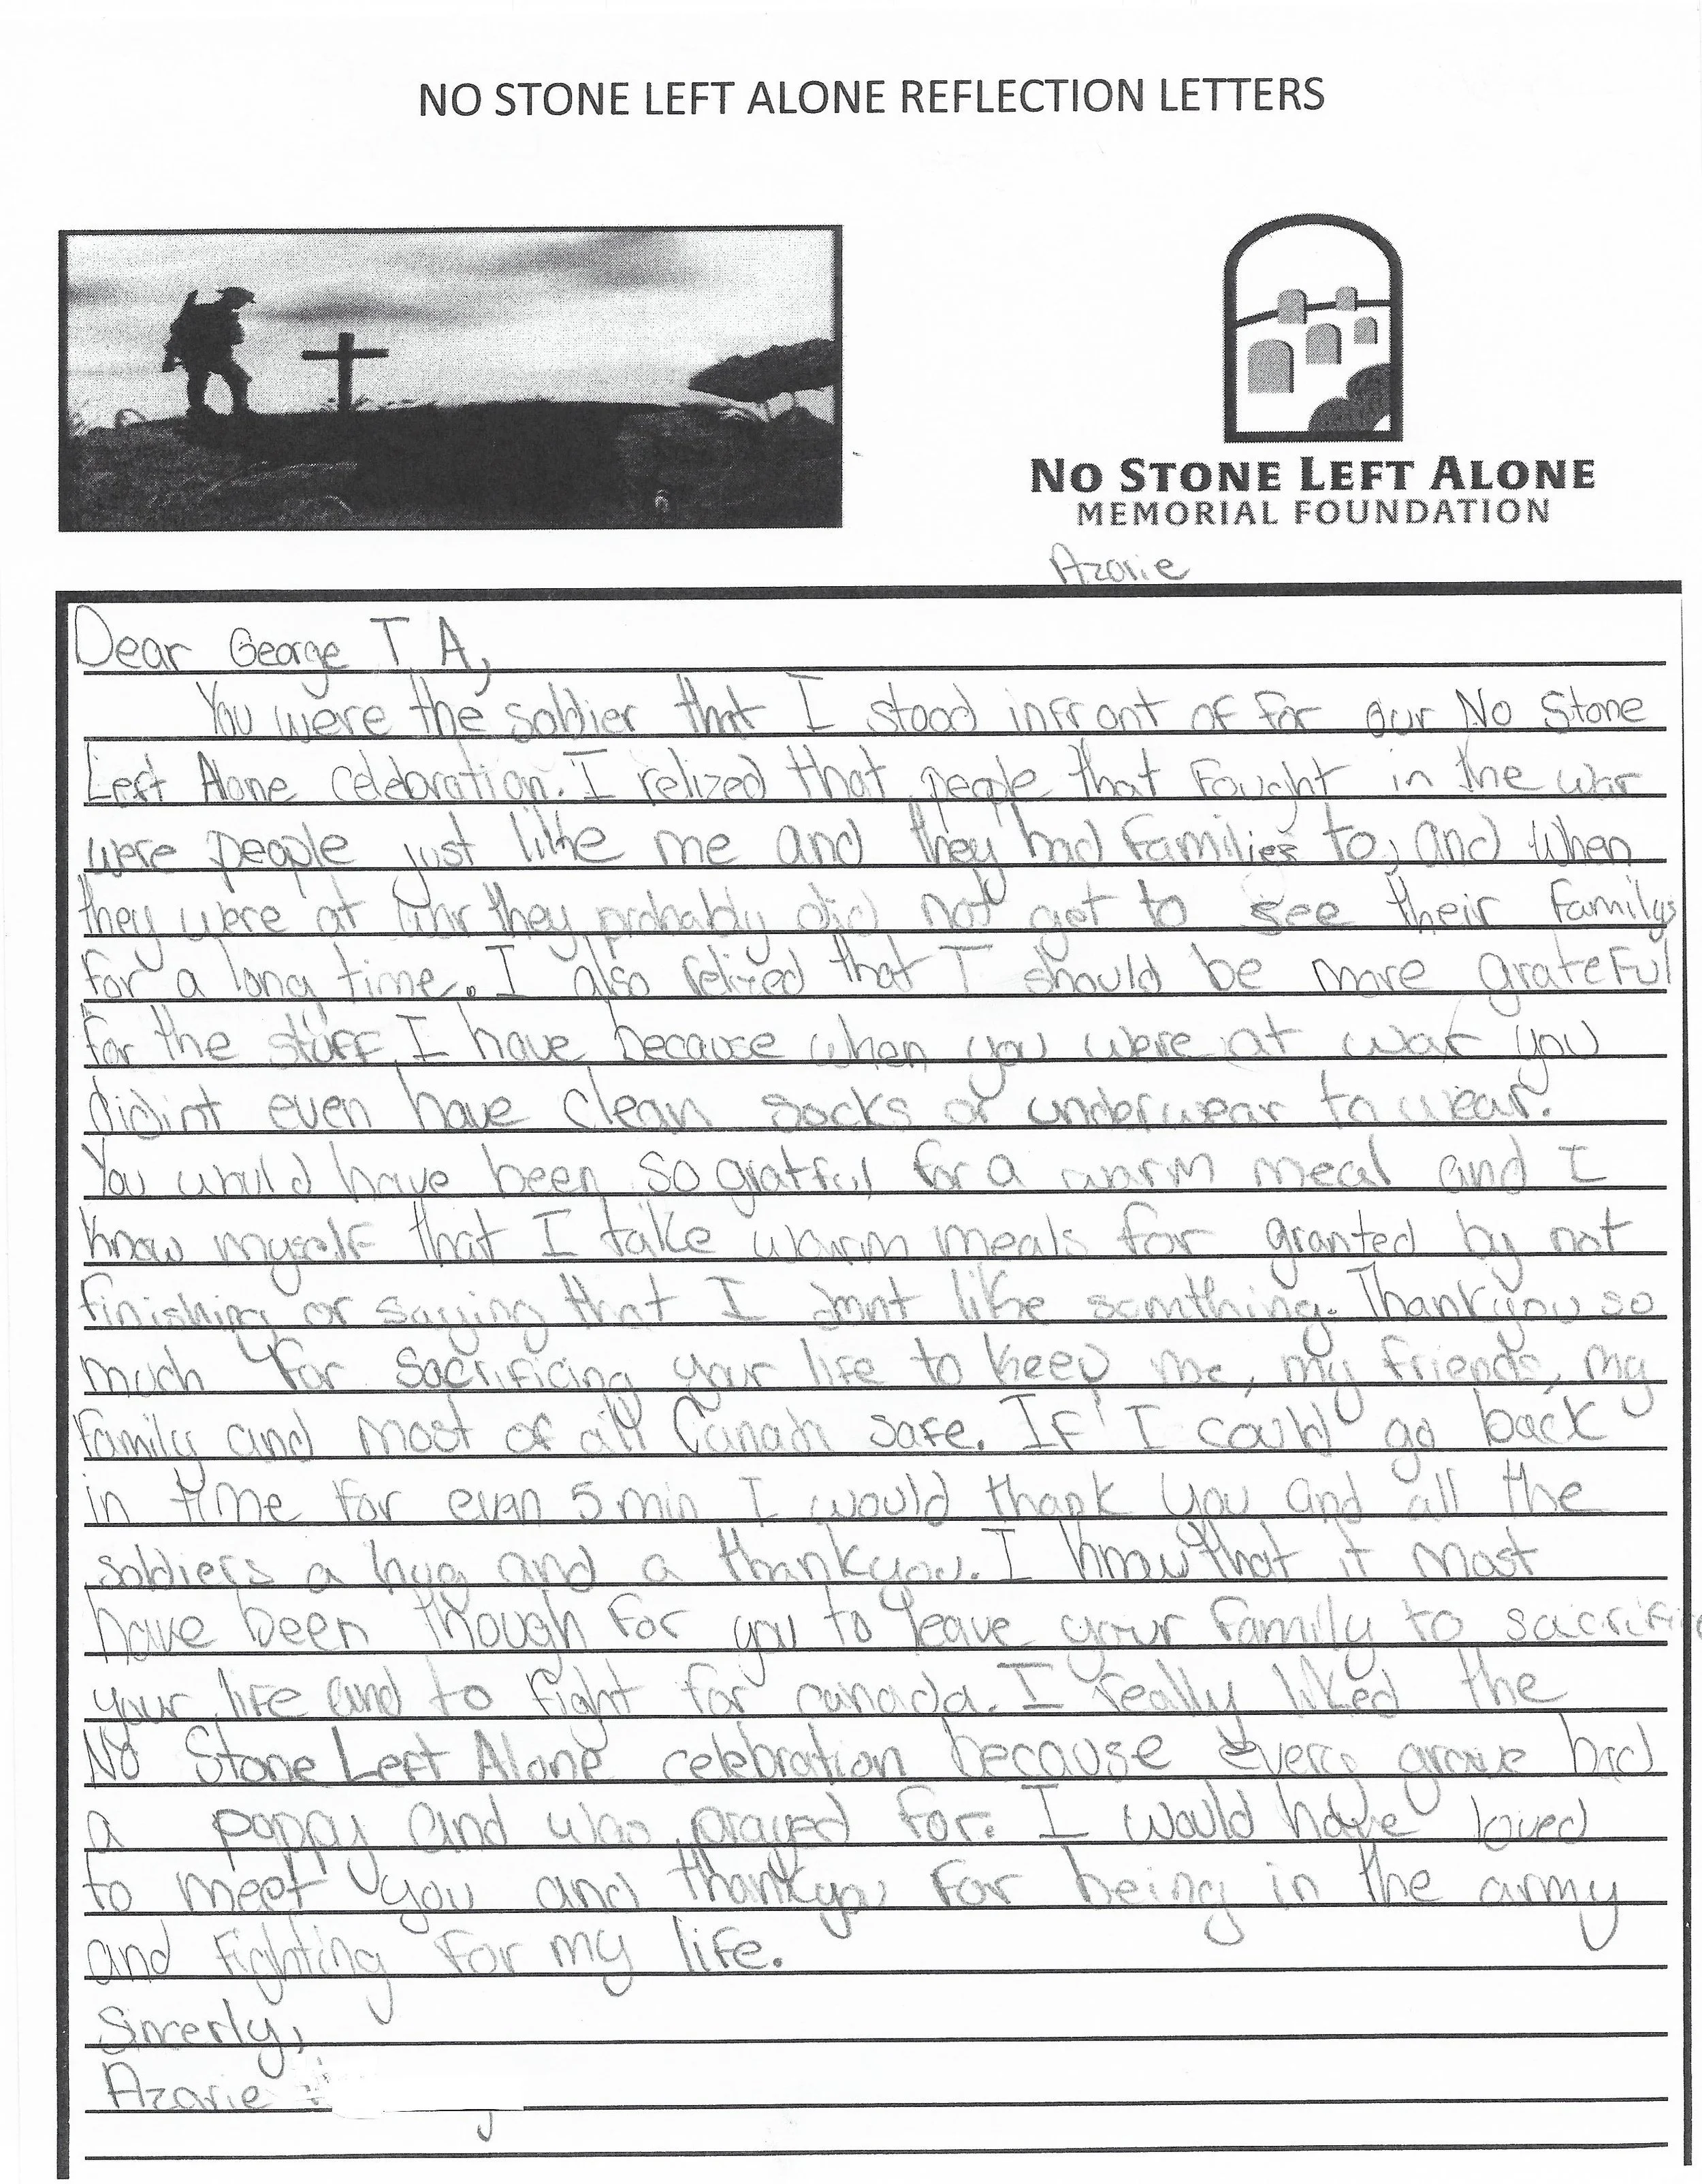 NO STONE LEFT ALONE REFLECTION LETTERS
NO STONE LEFT ALONE
MEMORIAL FOUNDATION
Azorie
Dear George T A,
You were the soldier that I stood infront of for our No Stone
Left Alone celebration. I relized that people that Fought in the war
were people just like me and they had families to, and when
they were at war they probably did not get to see their familys
for a long time. I also relized that I should be more grateful
for the stuff I have because when you were at war you
didint even have clean socks or underwear to wear.
You would have been so gratful for a warm meal and I
know myself that I take warm meals for granted by not
finishing or saying that I dont like somthing. Thankyou so
much for sacrificing your life to keep me, my friends, my
family and most of all Canada safe. If I could go back
in time for even 5 min I would thank you and all the
soldiers a hug and a thankyou. I know that it most
have been though for you to leave your family to sacrifice
your life and to fight for canada. I really liked the
No Stone Left Alone celebration because every grave had
a poppy and was prayed for. I would have loved
to meet you and thankyou for being in the army
and fighting for my life.
Sincerly,
Azorie